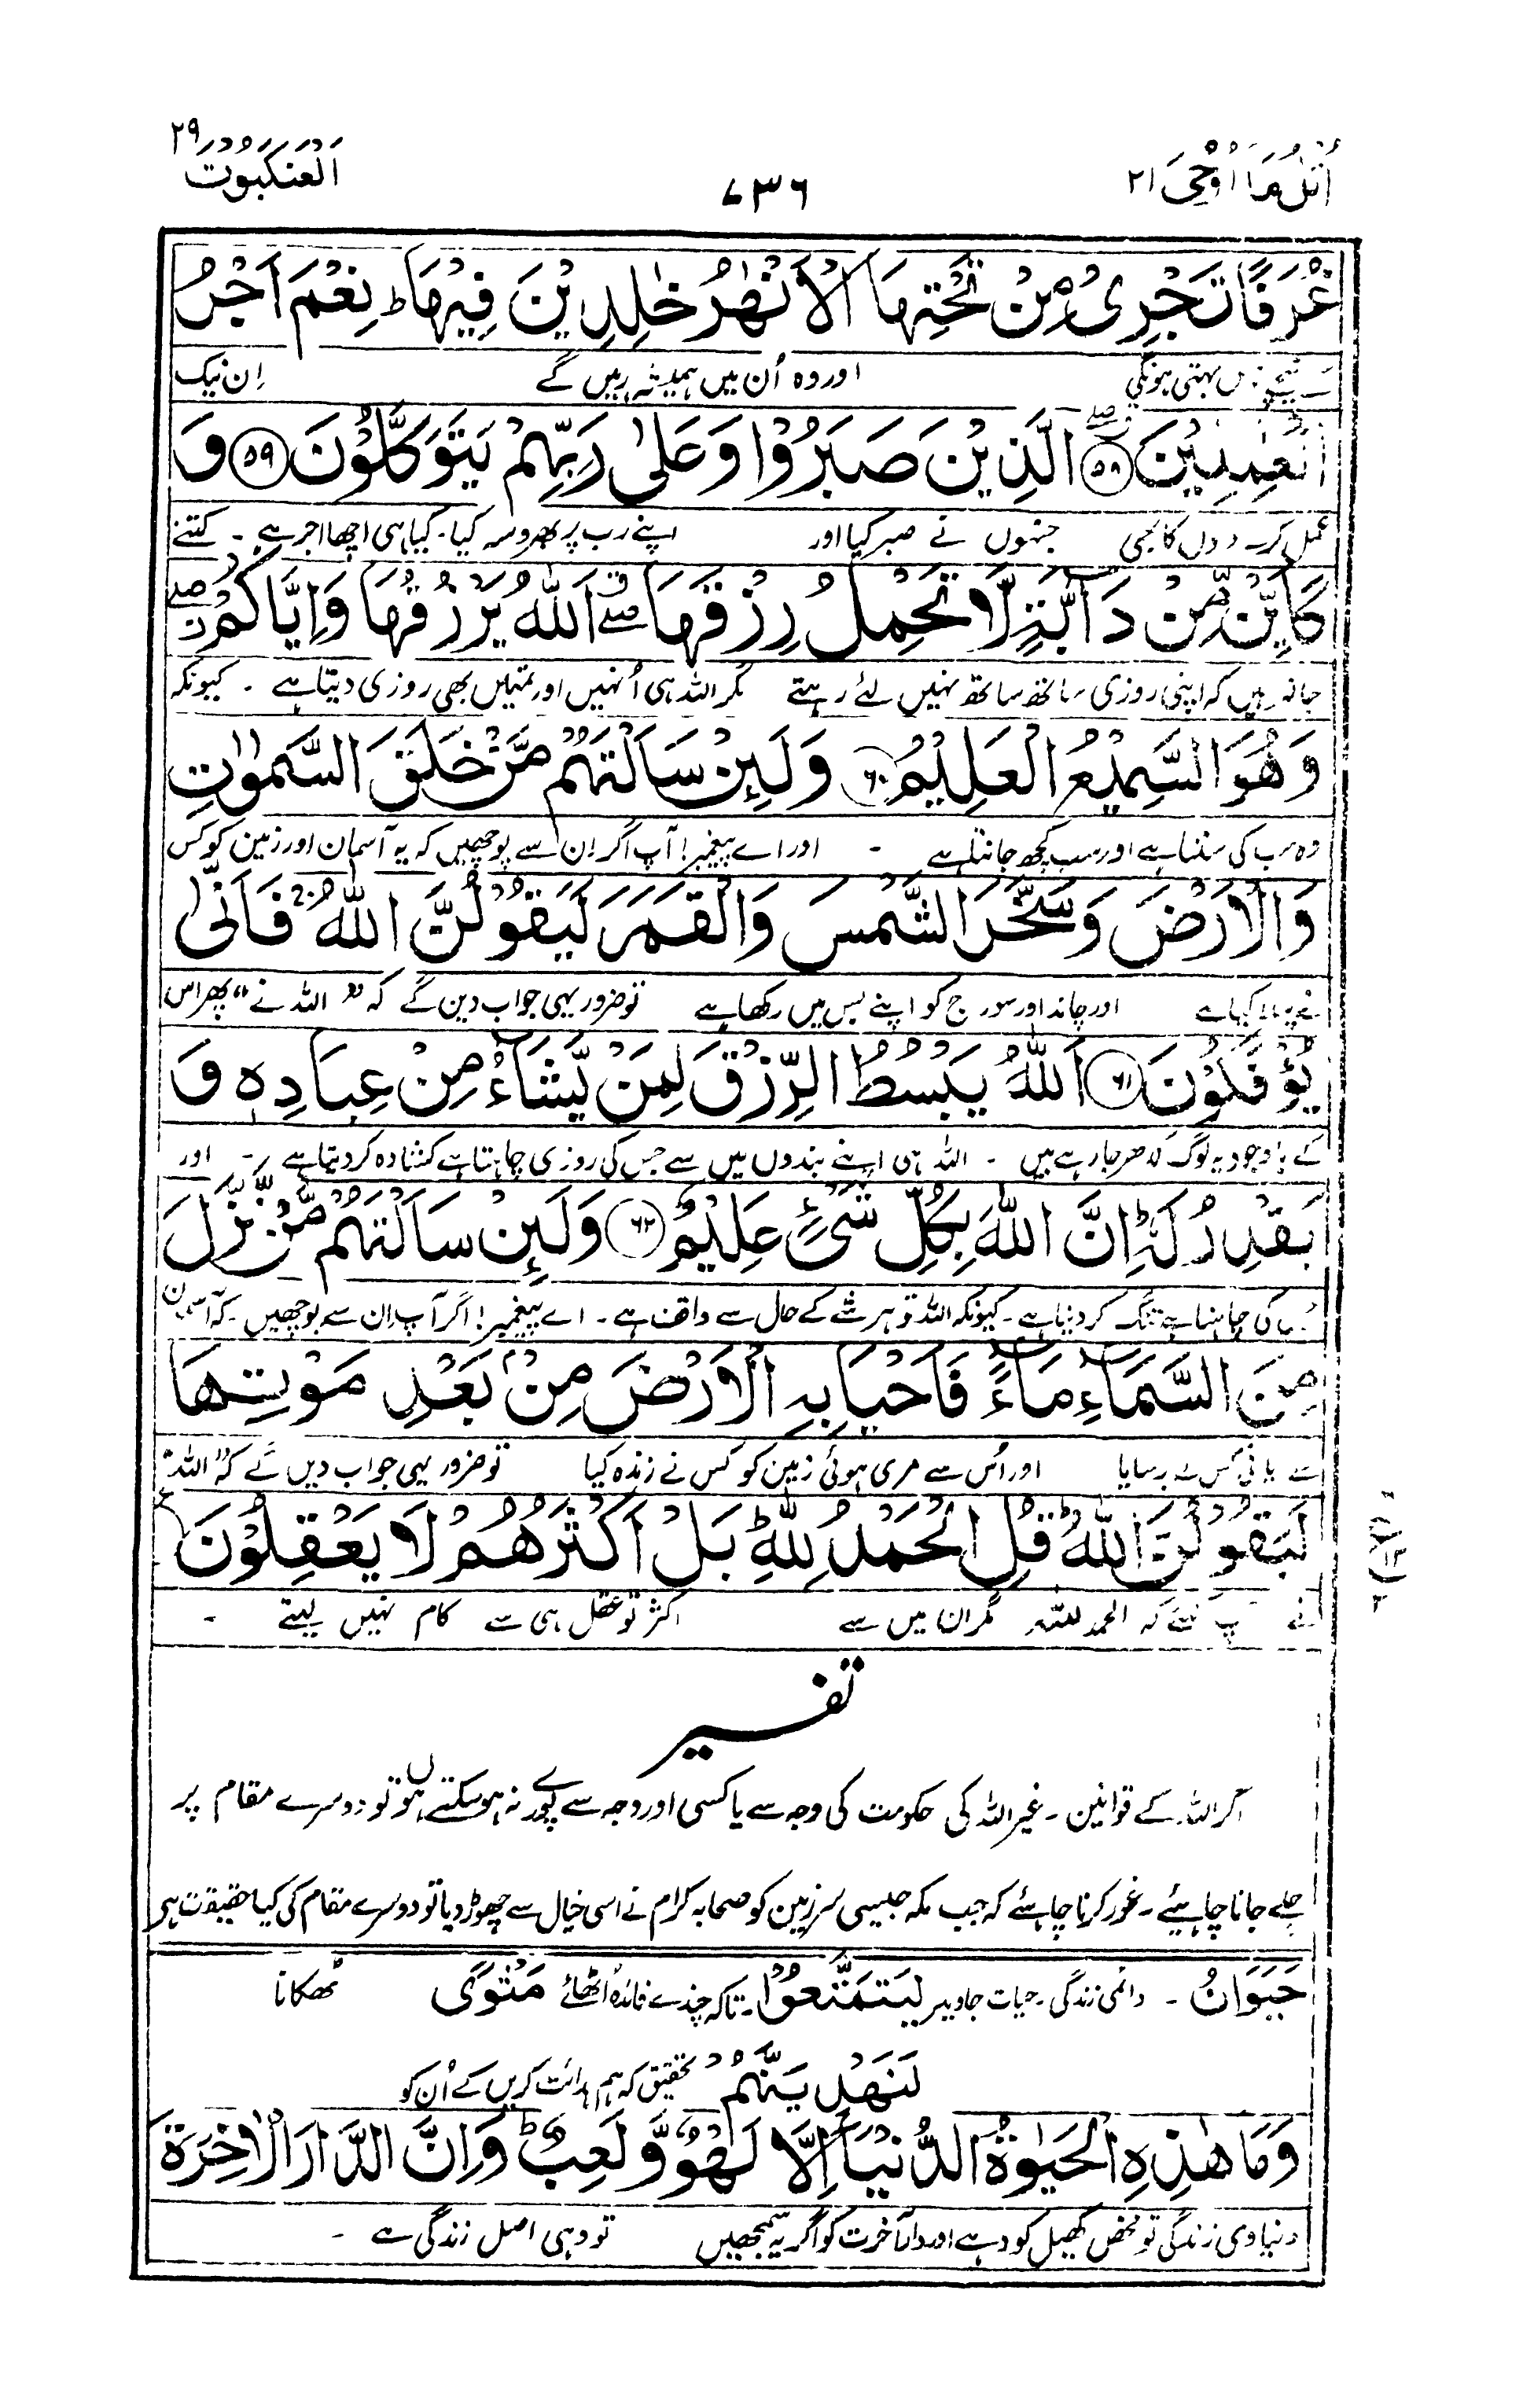 اُتْلُ مَا اُوْحِیَ ۲۱
۷۳۶
اَلْعَنْکَبُوْت ۲۹
غُرَفًا تَجْرِیْ مِنْ تَحْتِهَا الْاَنْهٰرُ خٰلِدِیْنَ فِیْهَا ؕ نِعْمَ اَجْرُ
بہتی ہونگی اور وہ اُن میں ہمیشہ رہیں گے اِن نیک
الْعٰمِلِیْنَ ﴿۵۸﴾ الَّذِیْنَ صَبَرُوْا وَ عَلٰی رَبِّهِمْ یَتَوَکَّلُوْنَ ﴿۵۹﴾ وَ
عمل کا بھی جنہوں نے صبر کیا اور اپنے رب پر بھروسہ کیا۔ کیا ہی اچھا اجر ہے ۔ کتنے
کَاَیِّنْ مِّنْ دَآبَّةٍ لَّا تَحْمِلُ رِزْقَهَا ۖق اَللّٰهُ یَرْزُقُهَا وَ اِیَّاکُمْ ۖز
ہیں کہ اپنی روزی ساتھ ساتھ نہیں لئے رہتے مگر اللہ ہی اُنہیں اور تمہیں بھی روزی دیتا ہے ۔ کیونکہ
وَ هُوَ السَّمِیْعُ الْعَلِیْمُ ﴿۶۰﴾ وَ لَئِنْ سَاَلْتَهُمْ مَّنْ خَلَقَ السَّمٰوٰتِ
وہ سب کی سنتا ہے اور سب کچھ جانتا ہے ۔ اور اے پیغمبر! آپ اگر اِن سے پوچھیں کہ یہ آسمان اور زمین کو کس
وَ الْاَرْضَ وَ سَخَّرَ الشَّمْسَ وَ الْقَمَرَ لَیَقُوْلُنَّ اللّٰهُ ۚ فَاَنّٰی
نے پیدا کیا ہے اور چاند اور سورج کو اپنے بس میں رکھا ہے تو ضرور یہی جواب دیں گے کہ "اللہ نے" پھر اس
یُؤْفَکُوْنَ ﴿۶۱﴾ اَللّٰهُ یَبْسُطُ الرِّزْقَ لِمَنْ یَّشَآءُ مِنْ عِبَادِهٖ وَ
کے باوجود یہ لوگ کدھر جا رہے ہیں ۔ اللہ ہی اپنے بندوں میں سے جس کی روزی چاہتا ہے کشادہ کر دیتا ہے ۔ اور
یَقْدِرُ لَهٗ ؕ اِنَّ اللّٰهَ بِکُلِّ شَیْءٍ عَلِیْمٌ ﴿۶۲﴾ وَ لَئِنْ سَاَلْتَهُمْ مَّنْ نَّزَّلَ
کی چاہتا ہے تنگ کر دیتا ہے ۔ کیونکہ اللہ تو ہر شے کے حال سے واقف ہے ۔ اے پیغمبر! اگر آپ ان سے پوچھیں ۔ کہ آسمان
مِنَ السَّمَآءِ مَآءً فَاَحْیَا بِهِ الْاَرْضَ مِنْۢ بَعْدِ مَوْتِهَا
سے پانی کس نے برسایا اور اُس سے مری ہوئی زمین کو کس نے زندہ کیا تو ضرور یہی جواب دیں گے کہ "اللہ
لَیَقُوْلُنَّ اللّٰهُ ؕ قُلِ الْحَمْدُ لِلّٰهِ ؕ بَلْ اَکْثَرُهُمْ لَا یَعْقِلُوْنَ
نے کہ الحمد للہ مگر ان میں سے اکثر تو عقل ہی سے کام نہیں لیتے ۔
تفسیر
اگر اللہ کے قوانین ۔ غیر اللہ کی حکومت کی وجہ سے یا کسی اور وجہ سے پورے نہ ہو سکتے ہوں تو دوسرے مقام پر
چلے جانا چاہیئے ۔ غور کرنا چاہئے کہ جب مکہ جیسی سرزمین کو صحابہ کرام نے اسی خیال سے چھوڑ دیا تو دوسرے مقام کی کیا حقیقت ہے
حَیَوَانُ ۔ دائمی زندگی ۔ حیات جاوید لِیَتَمَتَّعُوْا ۔ تاکہ چندے فائدہ اُٹھائے مَثْوًی ٹھکانا
لَنَهْدِیَنَّهُمْ تحقیق کہ ہم ہدائت کریں گے اُن کو
وَ مَا هٰذِهِ الْحَیٰوةُ الدُّنْیَآ اِلَّا لَهْوٌ وَّ لَعِبٌ ؕ وَ اِنَّ الدَّارَ الْاٰخِرَةَ
دنیاوی زندگی تو محض کھیل کود ہے اور دار آخرت کو اگر یہ سمجھیں تو وہی اصل زندگی ہے ۔